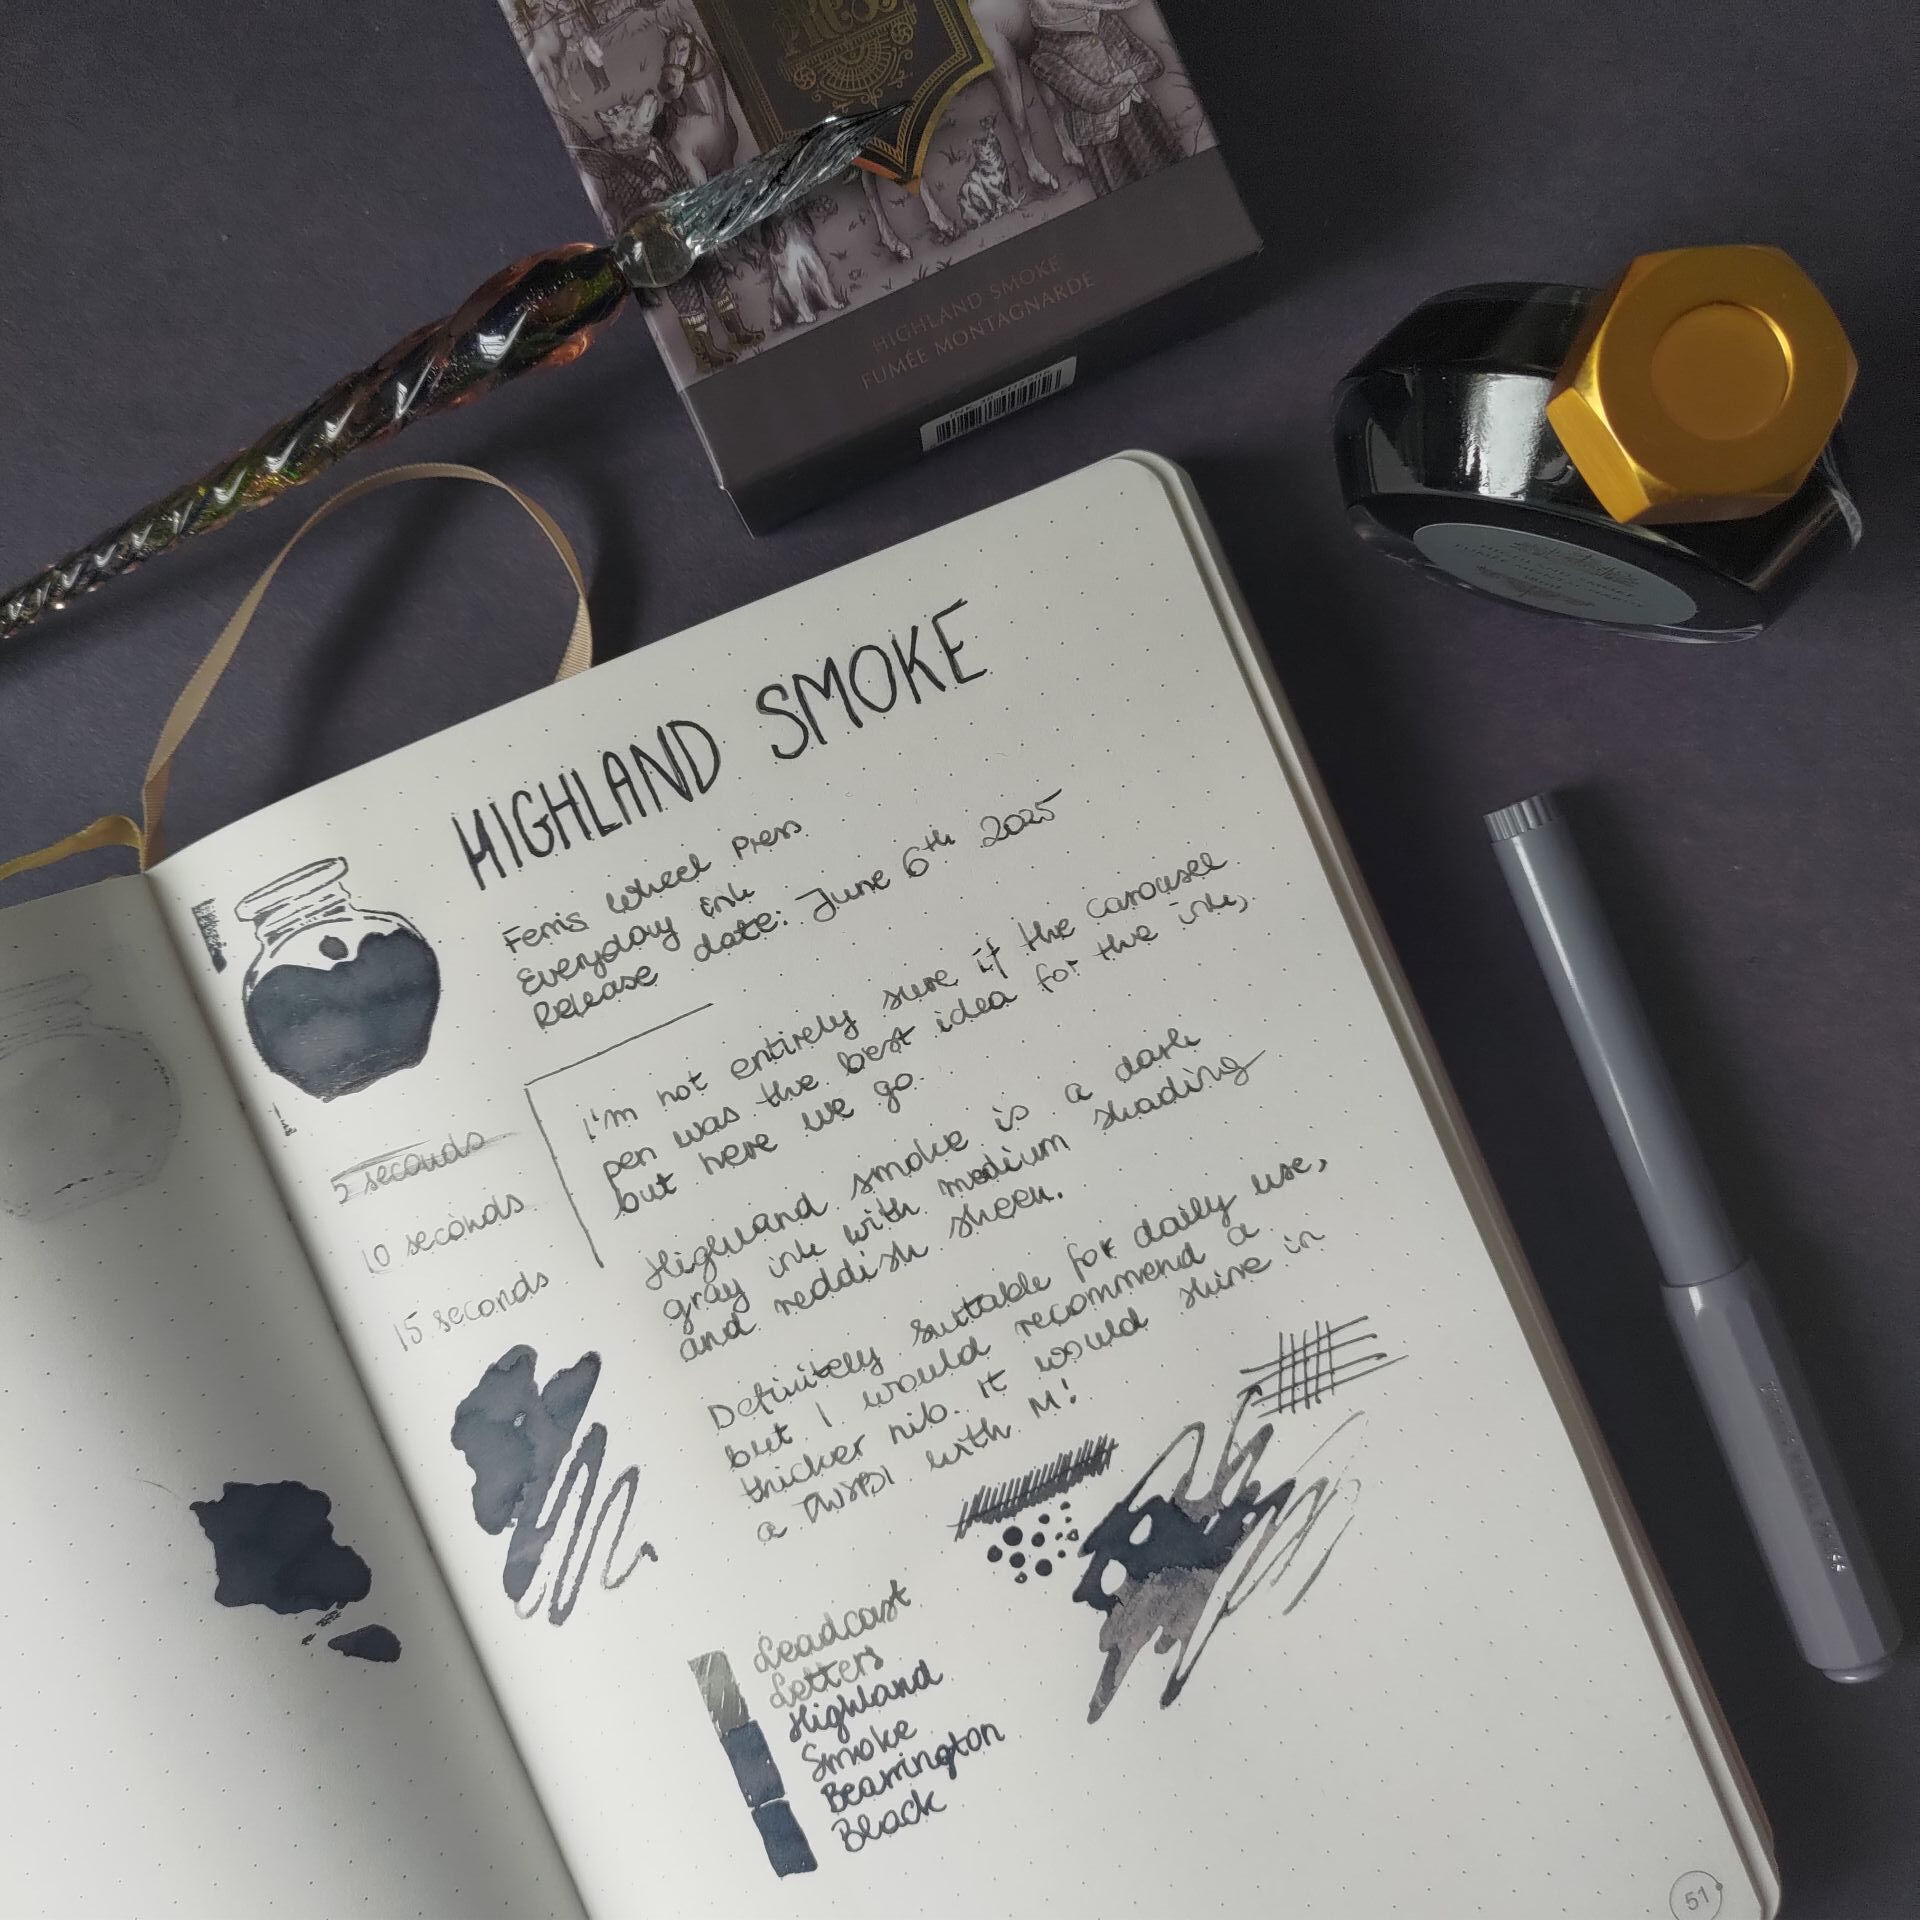 PRESS
HIGHLAND SMOKE
FUMÉE MONTAGNARDE
HIGHLAND SMOKE
Ferris Wheel Press
Everyday ink
Release date: June 6th 2025
I'm not entirely sure if the carousel
pen was the best idea for the ink,
but here we go.
Highland smoke is a dark
gray ink with medium shading
and reddish sheen.
Definitely suitable for daily use,
but I would recommend a
thicker nib. It would shine in
a TWSBI with M!
5 seconds
10 seconds
15 seconds
Leadcast
Letters
Highland
Smoke
Bearrington
Black
51